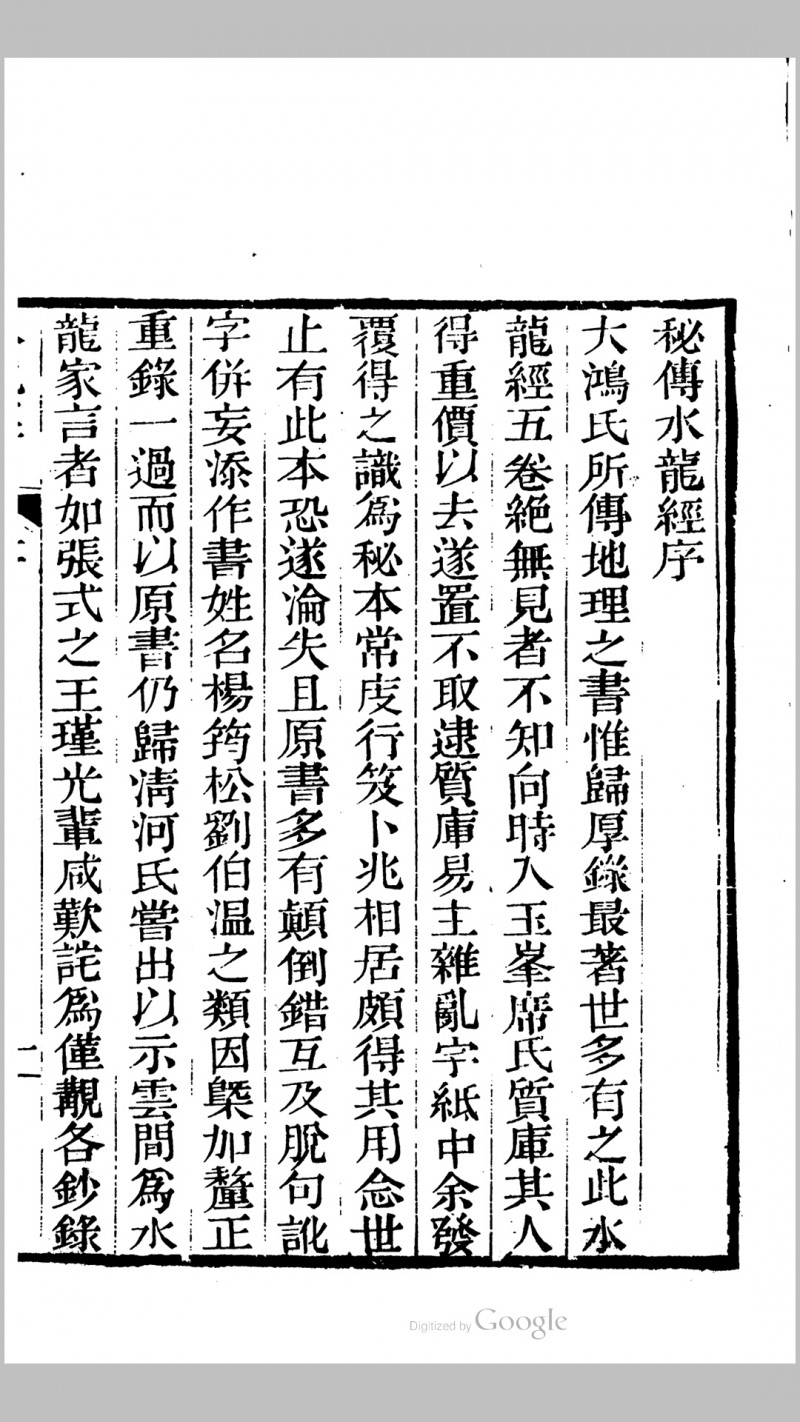 秘傳水龍經序
大鴻氏所傳地理之書惟歸厚錄最著世多有之此水
龍經五卷絕無見者不知向時入玉峯席氏質庫其人
得重價以去遂置不取逮質庫易主雜亂字紙中余發
覆得之識爲秘本常庋行笈卜兆相居頗得其用念世
止有此本恐遂淪失且原書多有顛倒錯互及脫句訛
字併妄添作書姓名楊筠松劉伯温之類因槩加釐正
重錄一過而以原書仍歸清河氏嘗出以示雲間爲水
龍家言者如張式之王瑾光輩咸歎詫爲僅覯各鈔錄
Digitized by Google